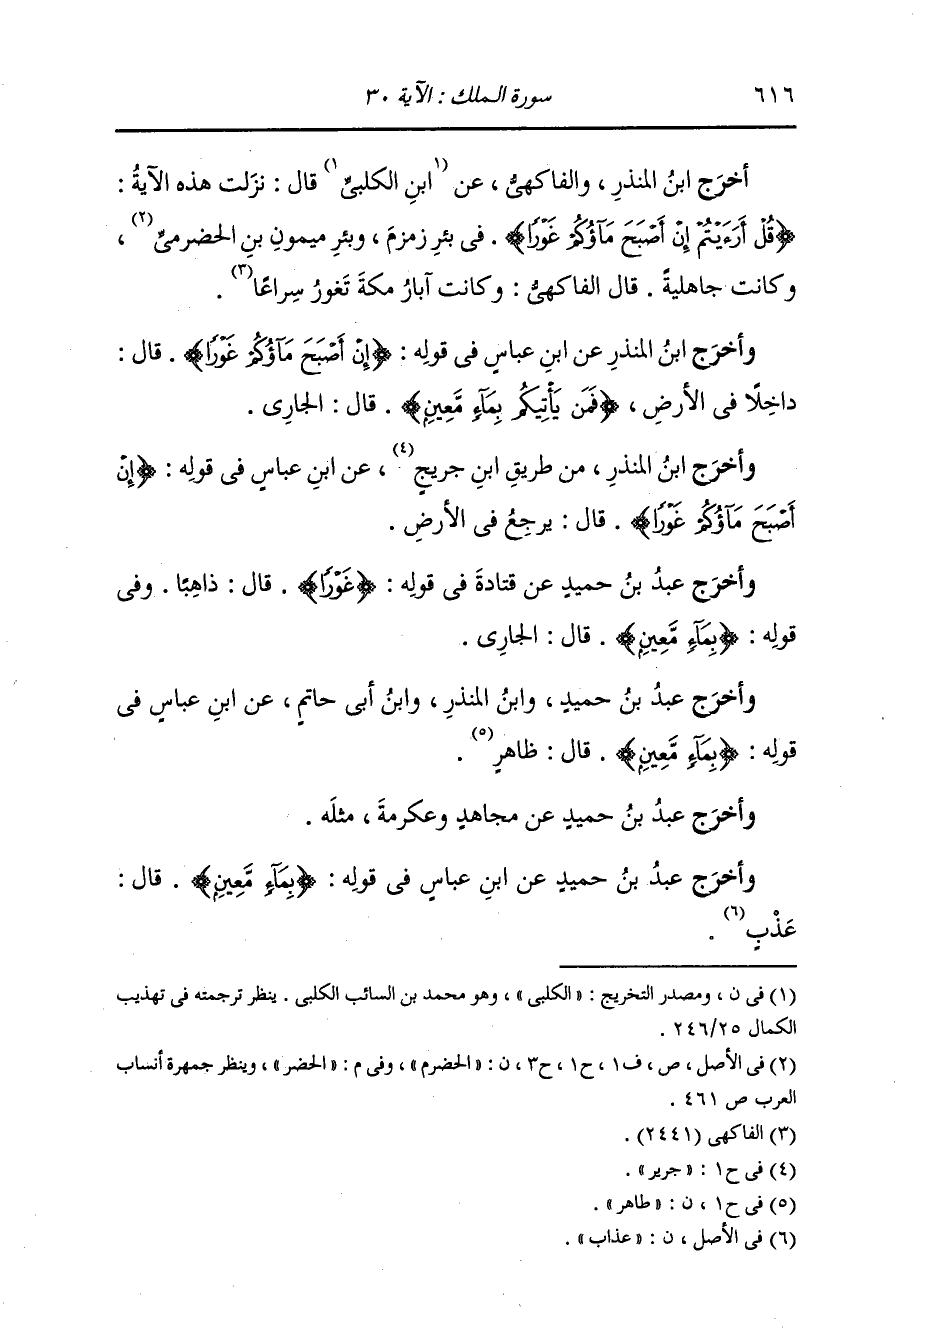 ٦١٦ سورة الملك : الآية ٣٠
أخرَج ابنُ المنذرِ ، والفاكهىُّ ، عن (١ابنِ الكلبىِّ١) قال : نزَلت هذه الآيةُ :
﴿قُلْ أَرَءَيْتُمْ إِنْ أَصْبَحَ مَآؤُكُمْ غَوْرًا﴾ . فى بئرِ زمزمَ ، وبئرِ ميمونِ بنِ الحضرمىِّ(٢) ،
وكانت جاهليةً . قال الفاكهىُّ : وكانت آبارُ مكةَ تَغورُ سِراعًا(٣) .
وأخرَج ابنُ المنذرِ عن ابنِ عباسٍ فى قولِه : ﴿إِنْ أَصْبَحَ مَآؤُكُمْ غَوْرًا﴾ . قال :
داخِلًا فى الأرضِ ، ﴿فَمَن يَأْتِيكُم بِمَآءٍ مَّعِينٍ﴾ . قال : الجارِى .
وأخرَج ابنُ المنذرِ ، من طريقِ ابنِ جريجٍ(٤) ، عن ابنِ عباسٍ فى قولِه : ﴿إِنْ
أَصْبَحَ مَآؤُكُمْ غَوْرًا﴾ . قال : يرجِعُ فى الأرضِ .
وأخرَج عبدُ بنُ حميدٍ عن قتادةَ فى قولِه : ﴿غَوْرًا﴾ . قال : ذاهِبًا . وفى
قولِه : ﴿بِمَآءٍ مَّعِينٍ﴾ . قال : الجارِى .
وأخرَج عبدُ بنُ حميدٍ ، وابنُ المنذرِ ، وابنُ أبى حاتمٍ ، عن ابنِ عباسٍ فى
قولِه : ﴿بِمَآءٍ مَّعِينٍ﴾ . قال : ظاهرٍ(٥) .
وأخرَج عبدُ بنُ حميدٍ عن مجاهدٍ وعكرمةَ ، مثلَه .
وأخرَج عبدُ بنُ حميدٍ عن ابنِ عباسٍ فى قولِه : ﴿بِمَآءٍ مَّعِينٍ﴾ . قال :
عَذْبٍ(٦) .
(١) فى ن ، ومصدر التخريج : « الكلبى » ، وهو محمد بن السائب الكلبى . ينظر ترجمته فى تهذيب
الكمال ٢٤٦/٢٥ .
(٢) فى الأصل ، ص ، ف١ ، ح١ ، ح٣ ، ن : « الحضرم » ، وفى م : « الحضر » ، وينظر جمهرة أنساب
العرب ص ٤٦١ .
(٣) الفاكهى (٢٤٤١) .
(٤) فى ح١ : « جرير » .
(٥) فى ح١ ، ن : « طاهر » .
(٦) فى الأصل ، ن : « عذاب » .